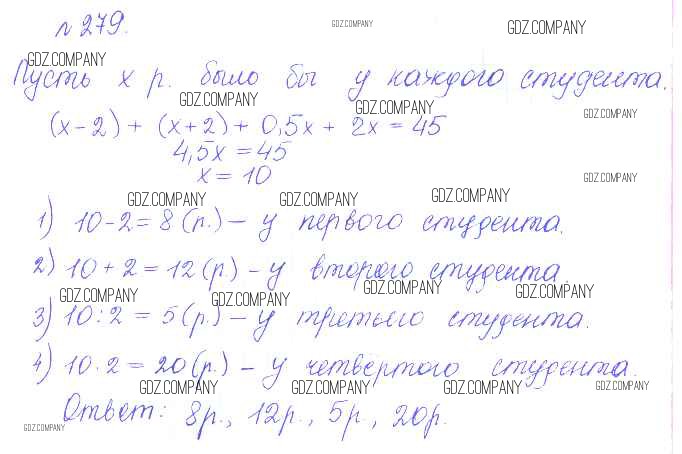 № 279.
GDZ.COMPANY GDZ.COMPANY
GDZ.COMPANY
Пусть x р. было бы у каждого студента.
GDZ.COMPANY GDZ.COMPANY GDZ.COMPANY
(x-2) + (x+2) + 0,5x + 2x = 45
4,5x = 45
x = 10
GDZ.COMPANY
GDZ.COMPANY GDZ.COMPANY GDZ.COMPANY
1) 10-2= 8 (р.) – у первого студента.
2) 10+2 = 12 (р.) – у второго студента.
GDZ.COMPANY GDZ.COMPANY GDZ.COMPANY GDZ.COMPANY
3) 10:2 = 5 (р.) – у третьего студента.
4) 10·2 = 20 (р.) – у четвертого студента.
GDZ.COMPANY GDZ.COMPANY GDZ.COMPANY GDZ.COMPANY
Ответ: 8р., 12р., 5р., 20р.
GDZ.COMPANY